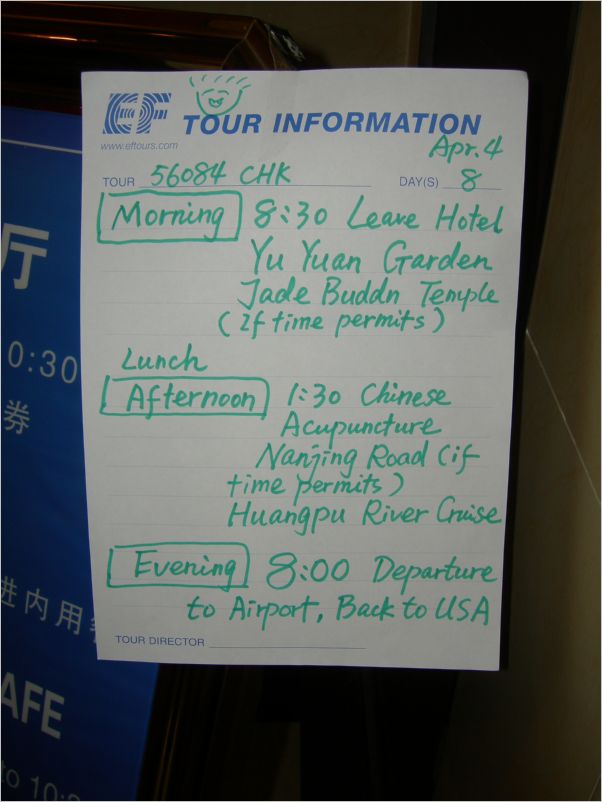 EF
www.eftours.com
TOUR INFORMATION
Apr. 4
TOUR 56084 CHK DAY(S) 8
Morning 8:30 Leave Hotel
Yu Yuan Garden
Jade Buddn Temple
(If time permits)
Lunch
Afternoon 1:30 Chinese
Acupuncture
Nanjing Road (if
time permits)
Huangpu River Cruise
Evening 8:00 Departure
to Airport, Back to USA
TOUR DIRECTOR
厅
0:30
券
进内用
AFE
to 10: